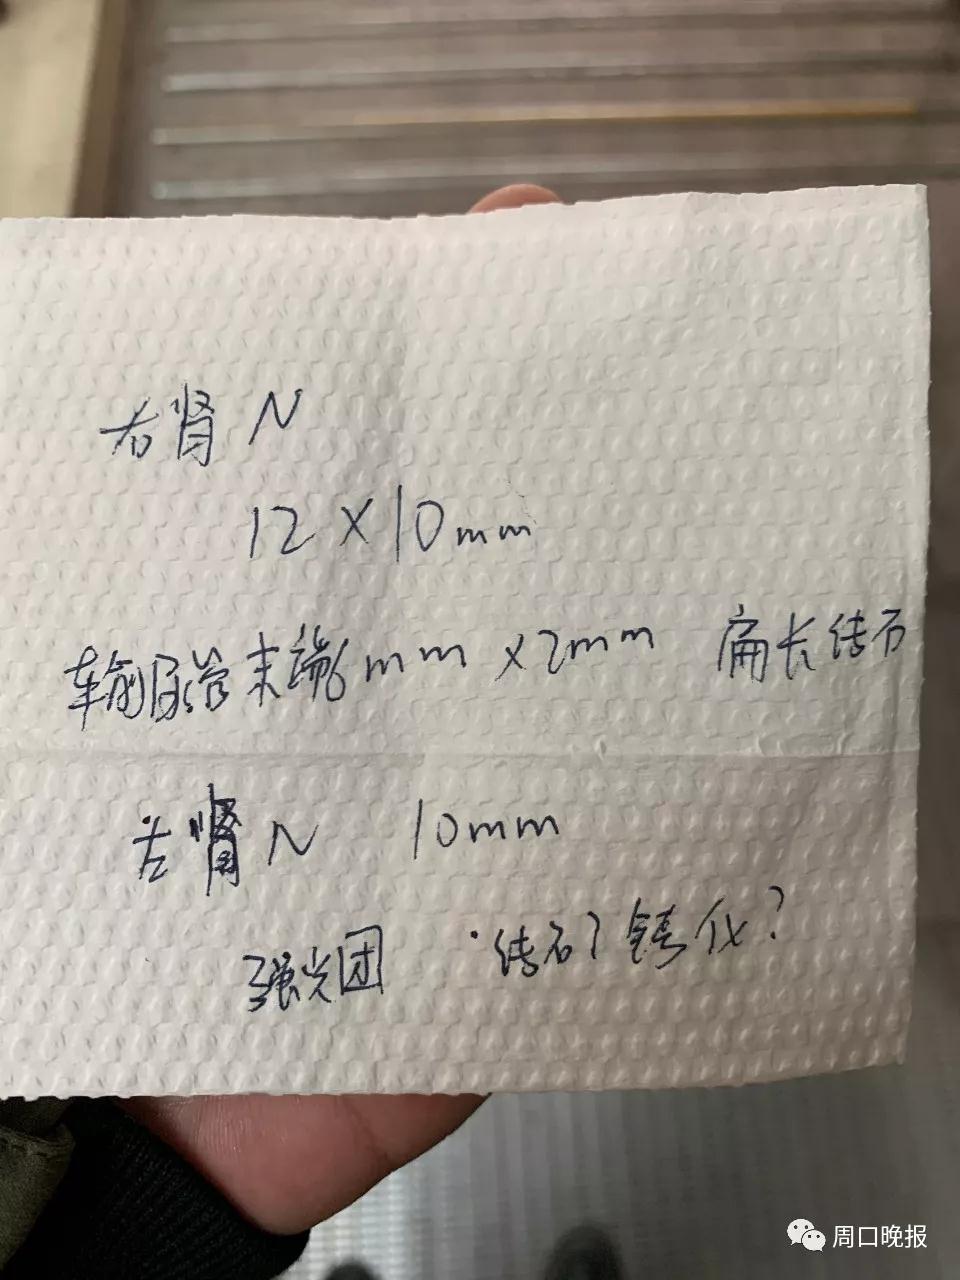 右肾 N
12×10mm
输尿管末端6mm×2mm 扁长结石
左肾 N 10mm
强光团 结石?钙化?
周口晚报